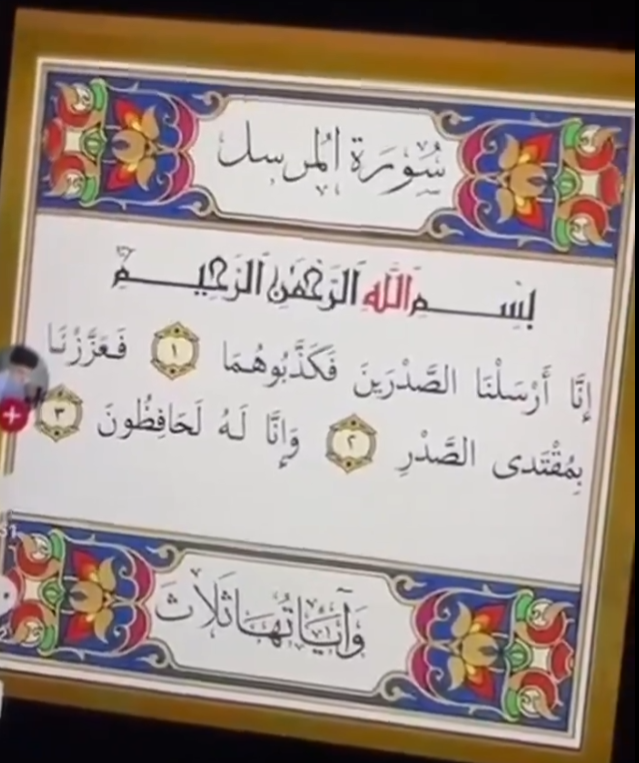 سُورَة المُرسل
بِسْمِ اللَّهِ الرَّحْمَٰنِ الرَّحِيمِ
إِنَّا أَرْسَلْنَا الصَّدْرَينَ فَكَذَّبُوهُمَا ١ فَعَزَّزْنَا
بِمُقْتَدى الصَّدْرِ ٢ وَإِنَّا لَهُ لَحَافِظُونَ ٣
وَآيَاتُهَا ثَلَاثَ